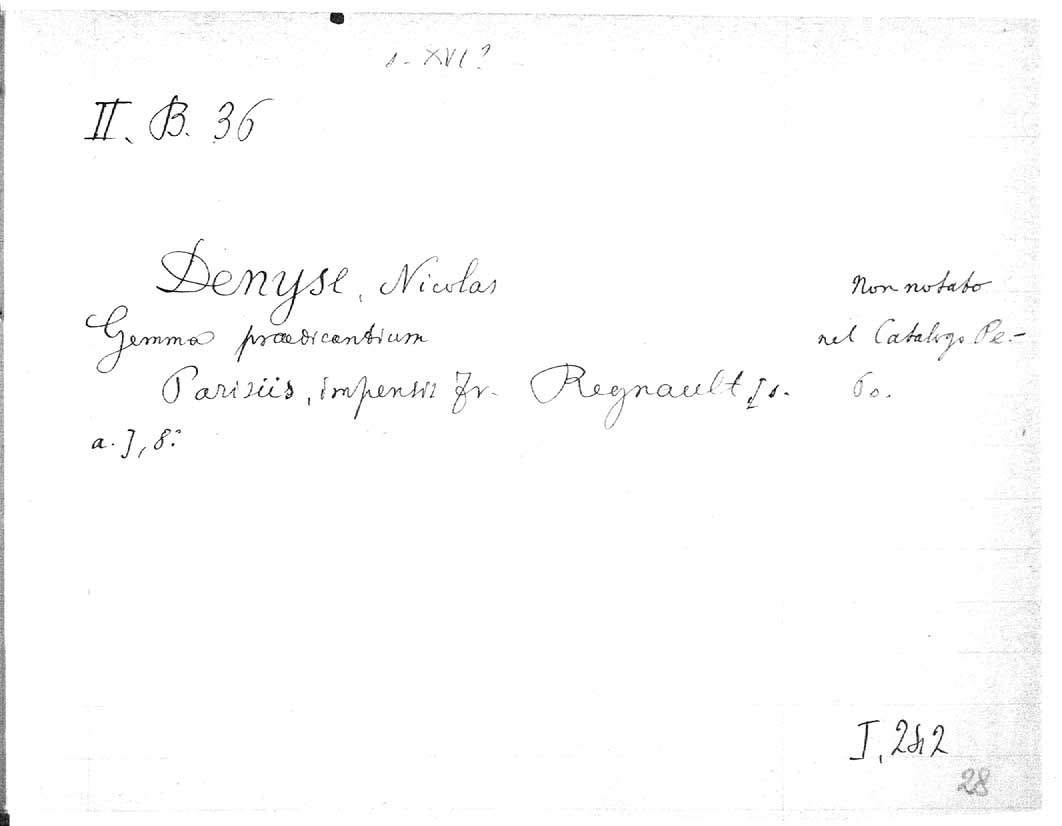 s. XVI?
II. B. 36
Denyse, Nicolas
Gemma praedicantium
Parisiis, impensis Fr. Regnault, [s.
a.], 8:
Non notato
nel Catalogo Pe-
to.
I, 242
28